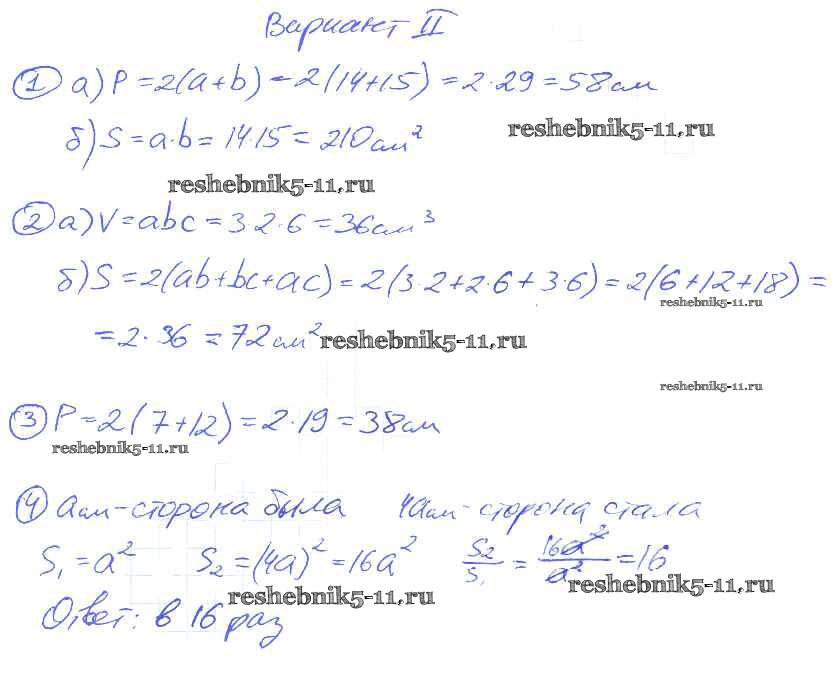 Вариант II
① а) P = 2(a+b) = 2(14+15) = 2·29 = 58 см
б) S = a·b = 14·15 = 210 см²
reshebnik5-11.ru
reshebnik5-11.ru
② а) V = abc = 3·2·6 = 36 см³
б) S = 2(ab+bc+ac) = 2(3·2+2·6+3·6) = 2(6+12+18) =
reshebnik5-11.ru
= 2·36 = 72 см²
reshebnik5-11.ru
reshebnik5-11.ru
③ P = 2(7+12) = 2·19 = 38 см
reshebnik5-11.ru
④ a см - сторона была 4a см - сторона стала
S₁ = a² S₂ = (4a)² = 16a² S₂/S₁ = 16a²/a² = 16
reshebnik5-11.ru
reshebnik5-11.ru
Ответ: в 16 раз